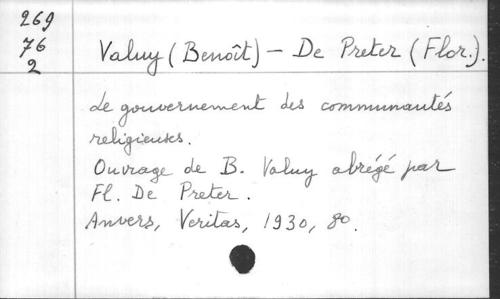 269
76
2
Valuy (Benoît) – De Preter (Flor.).
Le gouvernement des communautés
religieuses.
Ouvrage de B. Valuy abrégé par
Fl. De Preter.
Anvers, Veritas, 1930, 8o.